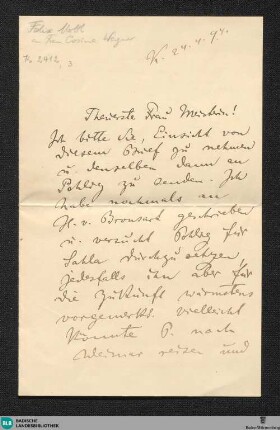 Felix Mottl
an Frau Cosima Wagner
K. 2412 3
K. 24.4.94.
Theuerste Frau Meisterin!
Ich bitte Sie, Einsicht von
diesem Brief zu nehmen
u. denselben dann an
Pohlig zu senden. Ich
habe nochmals an
H. v. Bronsart geschrieben
u. versucht Pohlig für
Lahla durchzusetzen,
jedesfalls ihn aber für
die Zukunft wärmstens
vorgemerkt. Vielleicht
könnte P. nach
Weimar reisen und
BLB
BADISCHE
LANDESBIBLIOTHEK
Baden-Württemberg